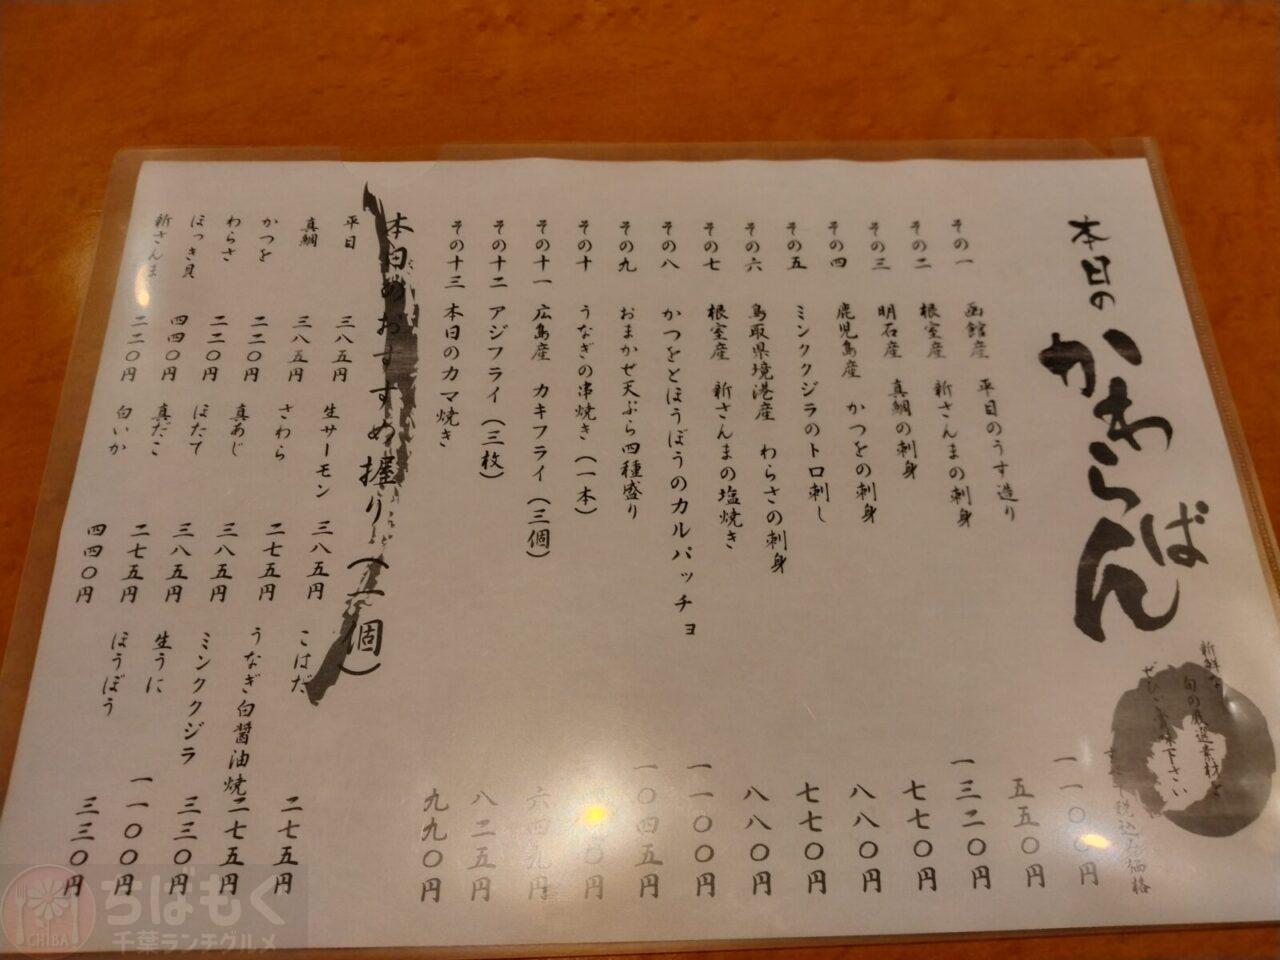 本日の
かわらばん
新鮮な
旬の厳選素材を
ぜひご賞味下さい
すべて税込み価格
その一 函館産 平目のうす造り 一一〇〇円
その二 根室産 新さんまの刺身 五五〇円
その三 明石産 真鯛の刺身 一三二〇円
その四 鹿児島産 かつをの刺身 七七〇円
その五 ミンククジラのトロ刺し 八八〇円
その六 鳥取県境港産 わらさの刺身 七七〇円
その七 根室産 新さんまの塩焼き 八八〇円
その八 かつをとほうぼうのカルパッチョ 一一〇〇円
その九 おまかせ天ぷら四種盛り 一〇四五円
その十 うなぎの串焼き(一本) 円
その十一 広島産 カキフライ(三個) 六四九円
その十二 アジフライ(三枚) 八二五円
その十三 本日のカマ焼き 九九〇円
本日のおすすめ握り(一個)
平目 三八五円 生サーモン 三八五円 こはだ 二七五円
真鯛 三八五円 さわら 二七五円 うなぎ白醤油焼 二七五円
かつを 二二〇円 真あじ 三八五円 ミンククジラ 三三〇円
わらさ 二二〇円 ほたて 三八五円 生うに 一一〇〇円
ほっき貝 四四〇円 真だこ 二七五円 ほうぼう 三三〇円
新さんま 二二〇円 白いか 四四〇円
ちばもく
千葉ランチグルメ
CHIBA